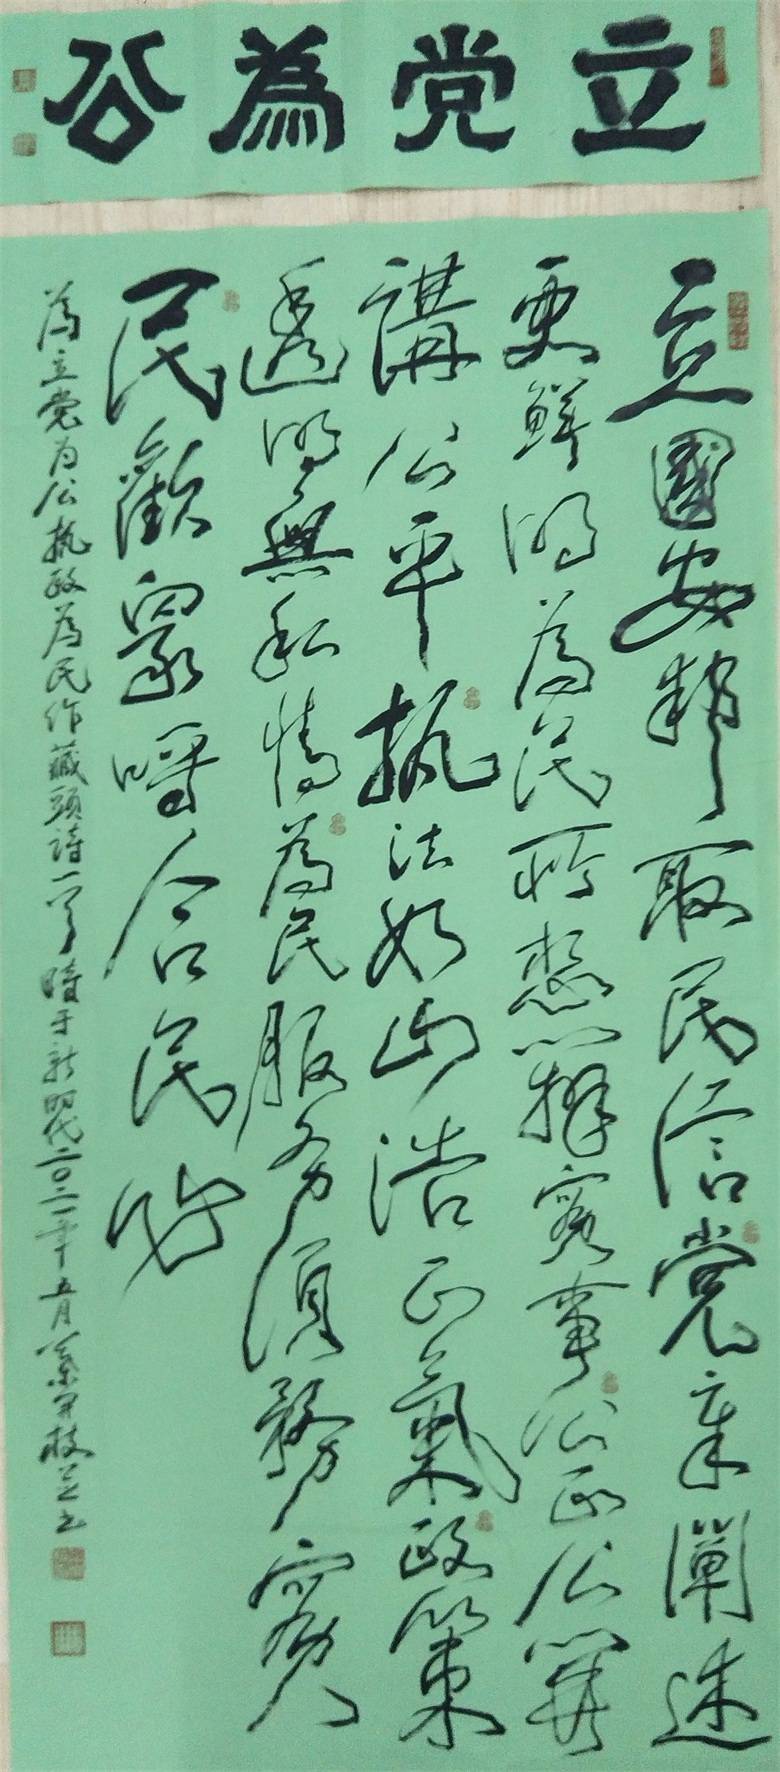 立党為公
立國安邦取民信党章闡述
更鮮明為民所想心擇寬事公正公開
講公平執法如山浩正氣政策
透明無私情為民服务須務實
民歡眾呼合民心
為立党为公执政為民作藏頭詩一首 時于新时代二〇二一年五月